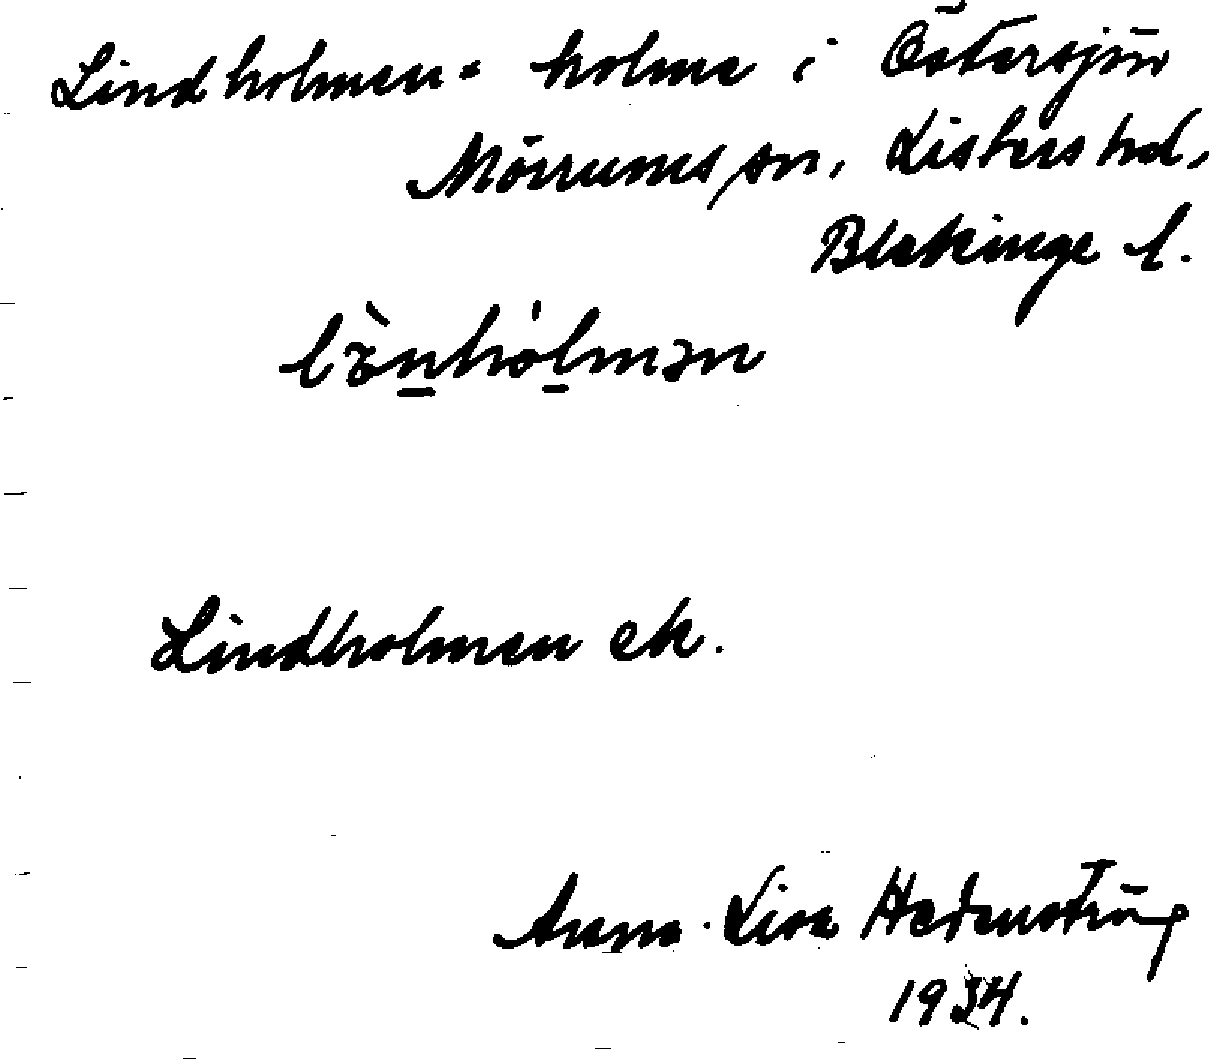 Lindholmen - holme i Östersjön
Mörrums sn, Listers hd,
Blekinge l.
Lindholmen ek.
Anna-Lisa
1934.